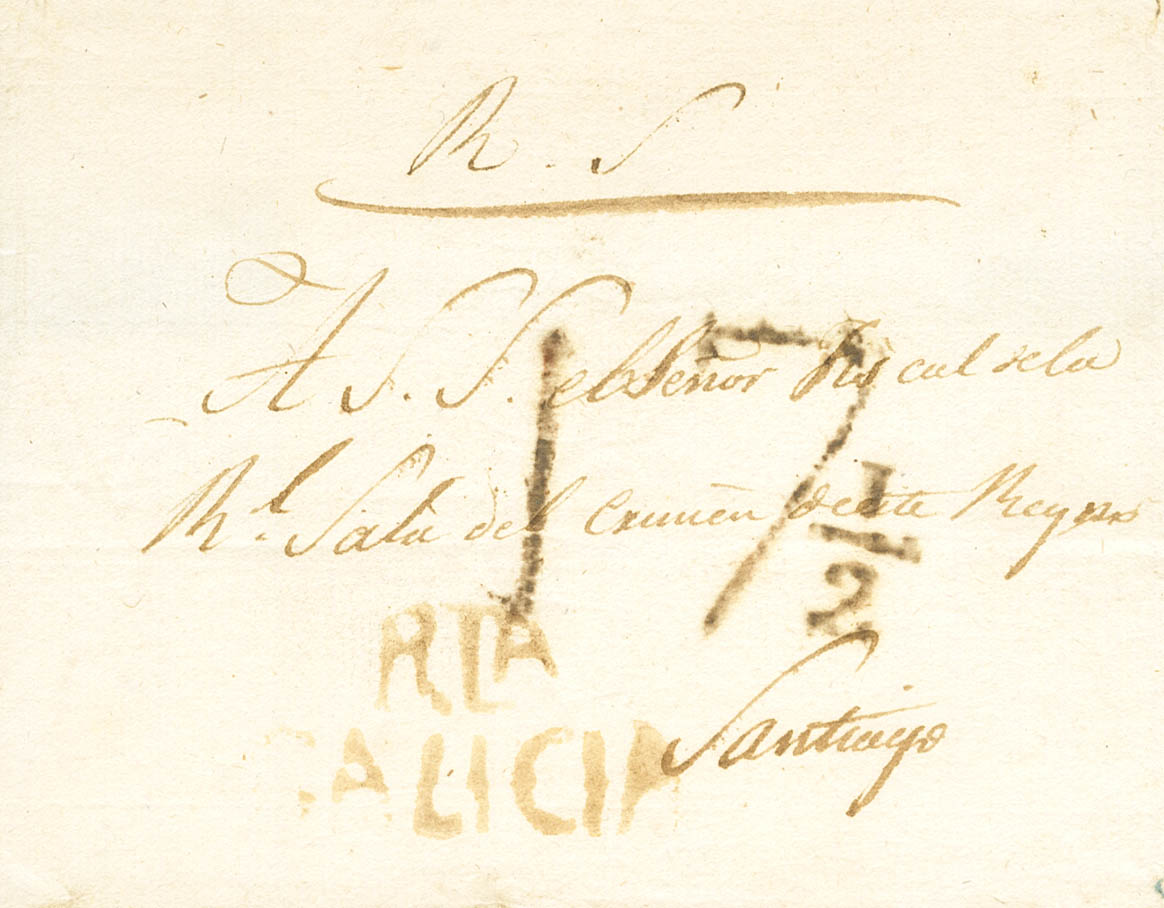 R. S
A S. S. el Señor Fiscal de la
Rl. Sala del Crimen de este Reyno
17 1/2
RTA
GALICIA
Santiago